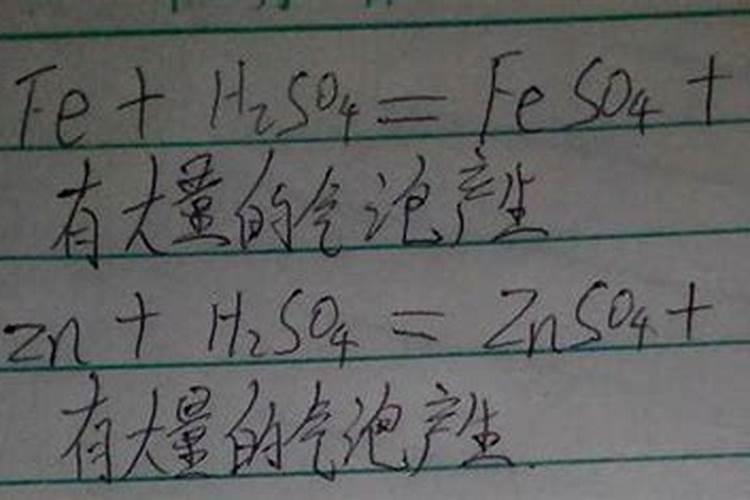 Fe + H₂SO₄ = FeSO₄ +
有大量的气泡产生
Zn + H₂SO₄ = ZnSO₄ +
有大量的气泡产生.